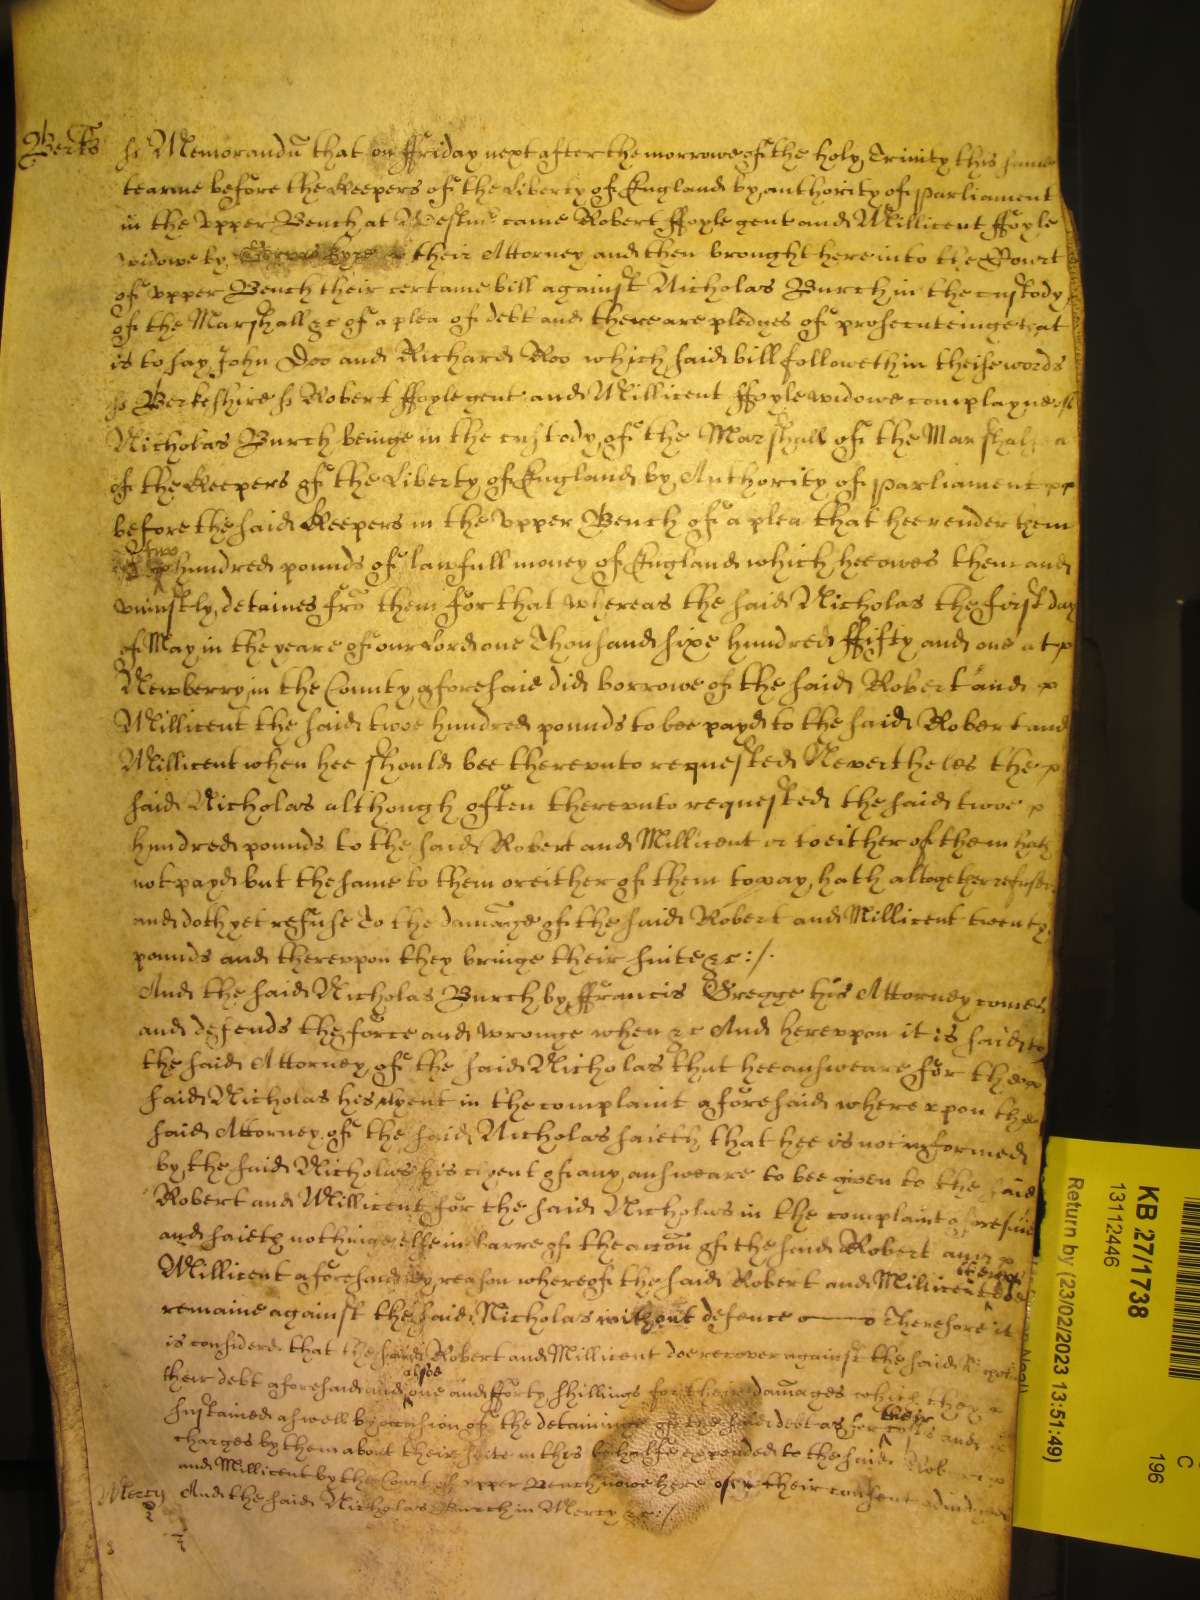 Berks ss Memorandū that on ffriday next after the morrowe of the holy Trinity this same
tearme before the Keepers of the Liberty of England by authority of Parliament
in the Vpper Bench at Westmr came Robert ffoyle gent and Millicent ffoyle
widowe by their Attorney and then brought here into the Court
of vpper Bench their certame bill against Nicholas Burch in the custody
of the Marshall &c of a plea of debt and there are pledges of prosecuteinge that
is to say John Doo and Richard Roo which said bill followeth in theise words
ss Berkeshire ss Robert ffoyle gent and Millicent ffoyle widowe complayne of
Nicholas Burch beinge in the custody of the Marshall of the Marshalsea
of the Keepers of the Liberty of England by Authority of Parliament
before the said Keepers in the Vpper Bench of a plea that hee render them
two hundred pounds of lawfull money of England which hee owes them and
vniustly detaines frō them for that whereas the said Nicholas the first day
of May in the yeare of our Lord one Thousand sixe hundred ffifty and one at
Newberry in the County aforesaid did borrowe of the said Robert and
Millicent the said twoe hundred pounds to bee payd to the said Robert and
Millicent when hee should bee therevnto requested Neverthelės the
said Nicholas although often therevnto requested the said twoe
hundred pounds to the said Robert and Millicent or to either of them hath
not payd but the same to them or either of them to pay hath altogether refused
and doth yet refuse To the damage of the said Robert and Millicent twenty
pounds and therevpon they bringe their suite &c :/.
And the said Nicholas Burch by ffrancis Gregge his Attorney comes
and defends the force and wronge when &c And herevpon it is said to
the said Attorney of the said Nicholas that hee answeare for the
said Nicholas his clyent in the complaint aforesaid wherevpon the
said Attorney of the said Nicholas saieth that hee is not informed
by the said Nicholas his clyent of any answeare to bee given to the said
Robert and Millicent for the said Nicholas in the complaint aforesaid
and saieth nothinge else in barre of the accōn of the said Robert and
Millicent aforesaid By reason whereof the said Robert and Millicent
remaine against the said Nicholas without defence Therefore it
is considerd that the said Robert and Millicent doe recover against the said Nicholas
their debt aforesaid and alsoe one and fforty shillings for their damages which they
sustained as well by occasion of the detaininge of the said debt as for their costs and
charges by them about their suite in this behalfe expended to the said Robert
and Millicent by the Court of vpper Bench nowe here of their consent adiudged
Mercy And the said Nicholas Burch in Mercy &c :/
KB 27/1738
13112446
Return by (23/02/2023 13:51:49)
C
196